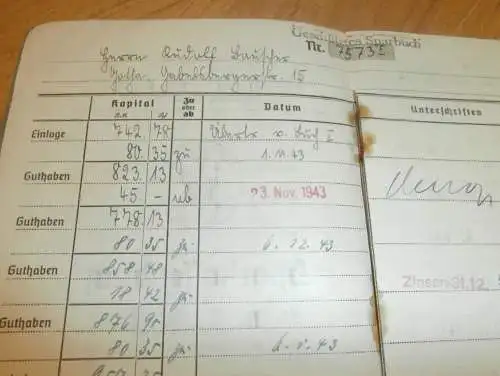 Gesichertes Sparbuch
Nr. 75731
Herrn Rudolf Bauscher
Gotha, Gabelsbergerstr. 15
Kapital Zu oder ab Datum Unterschriften
Einlage 742 78 Übertr. v. Buch I
80. 35 zu 1. 11. 43
Guthaben 823. 13
45 – ab 23. Nov. 1943
Guthaben 778. 13
80 35 zu 6. 12. 43
Guthaben 858. 48
18 42 zu Zinsen 31.12.
Guthaben 876 90
80 35 zu 43